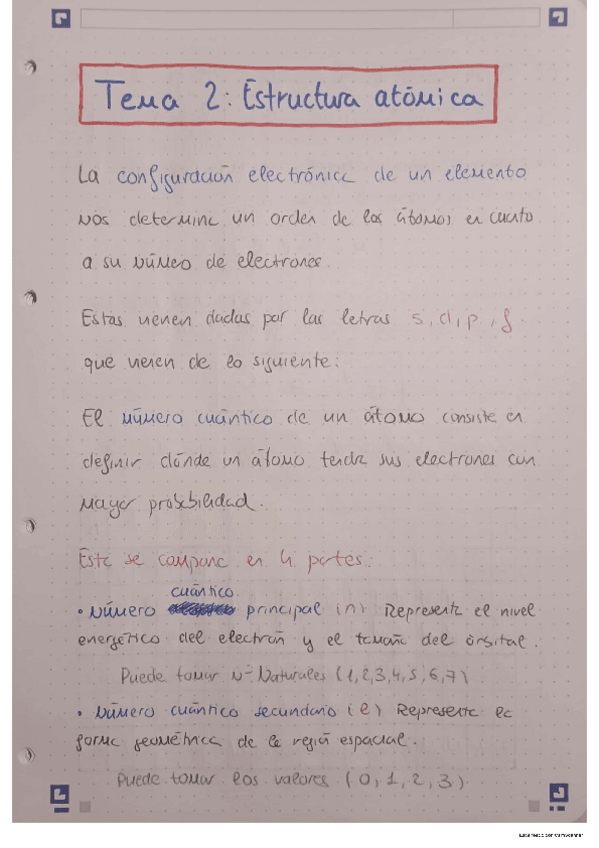 Tema 2: Estructura atómica
La configuración electrónica de un elemento
nos determina un orden de los átomos en cuanto
a su número de electrones.
Estas vienen dadas por las letras s, d, p, f
que vienen de lo siguiente:
El número cuántico de un átomo consiste en
definir dónde un átomo tendrá sus electrones con
mayor probabilidad.
Éste se compone en 4 partes:
cuántico
• Número principal (n) Representa el nivel
energético del electrón y el tamaño del orbital.
Puede tomar nº Naturales (1,2,3,4,5,6,7)
• Número cuántico secundario (l) Representa la
forma geométrica de la región espacial.
Puede tomar los valores (0, 1, 2, 3)